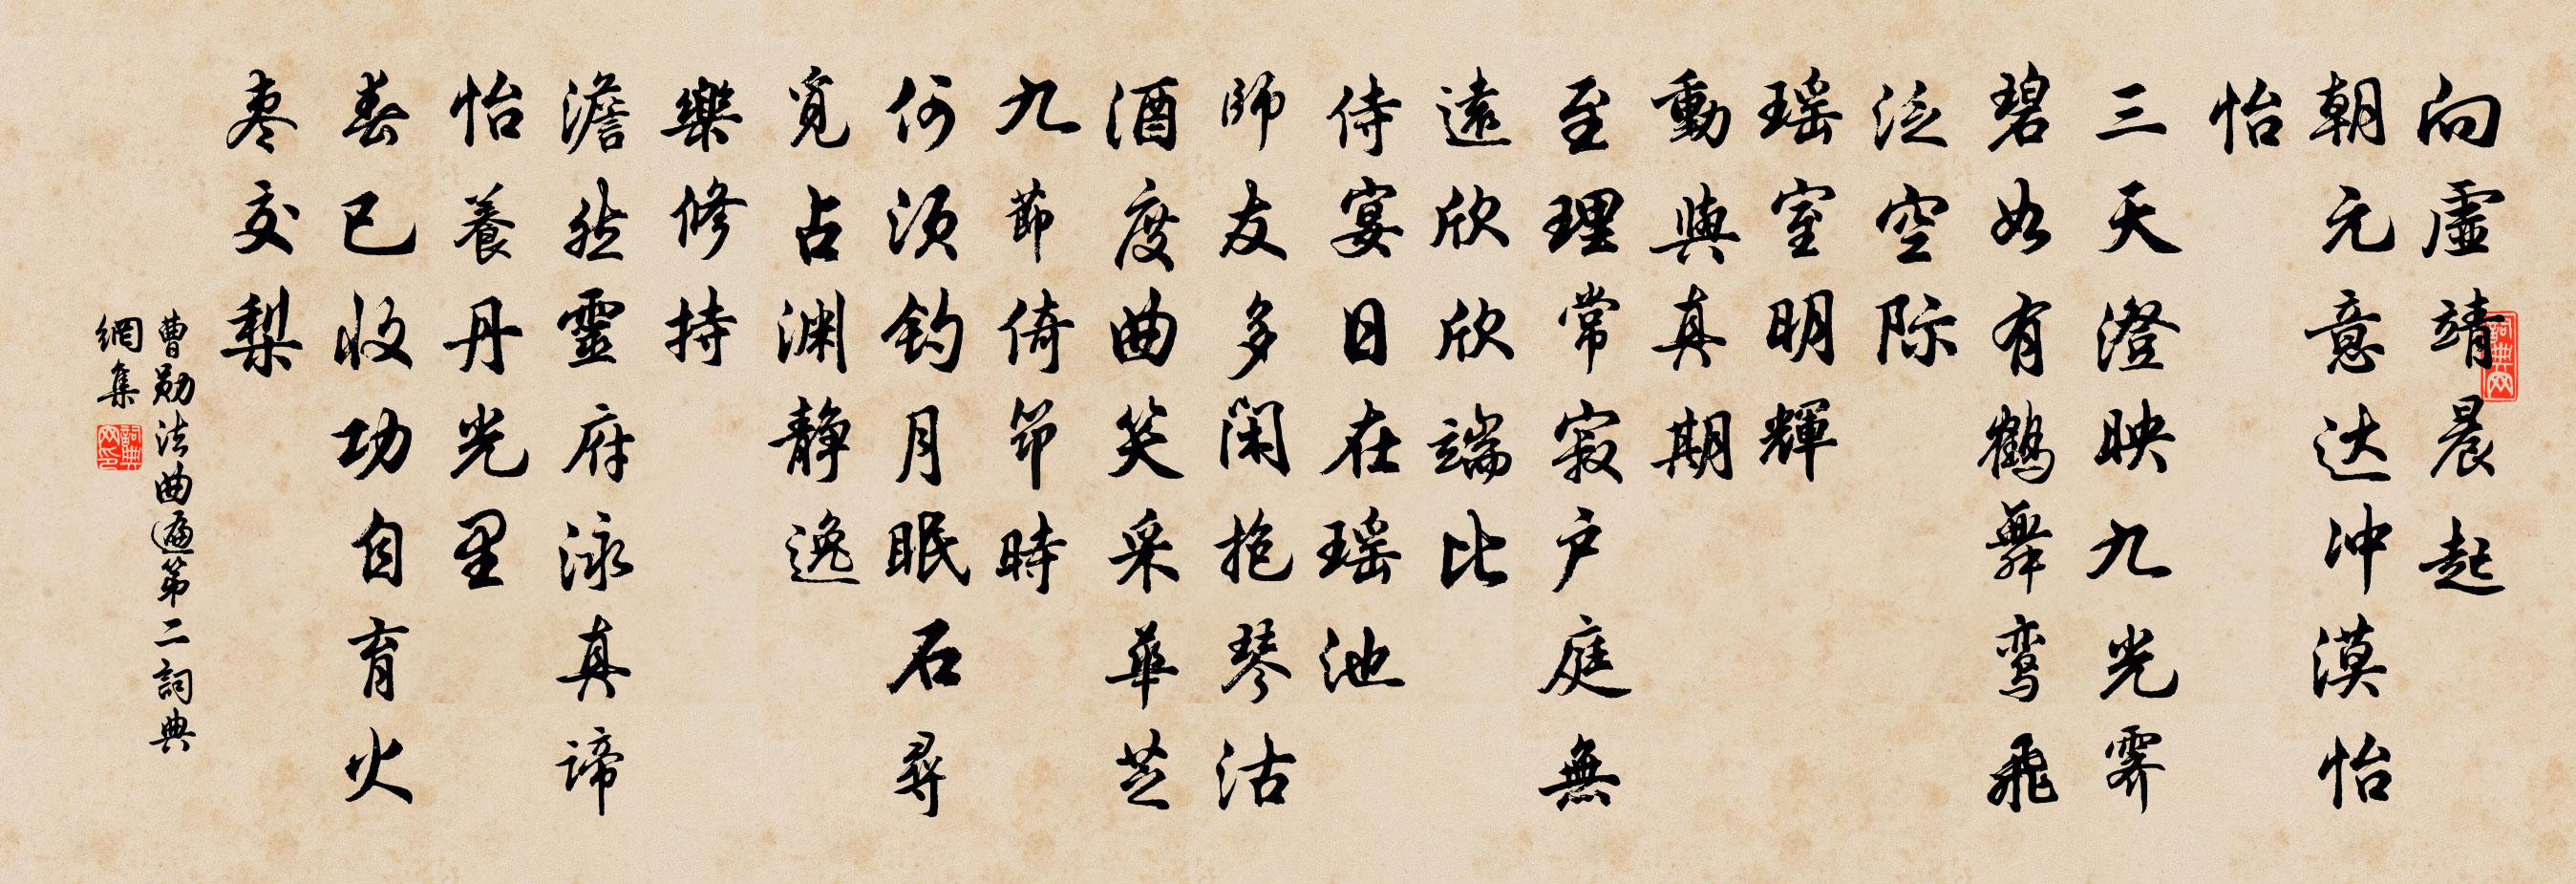 向虛靖晨起
朝元意达冲漠怡
怡
三天澄映九光霁
碧如有鹤舞鸾飛
泛空际
瑶室明輝
動與真期
至理常寂户庭無
遠欣欣端比
侍宴日在瑶池
師友多闲抱琴沽
酒度曲笑采華芝
九節倚筇時
何须钓月眠石尋
覓占渊静逸
樂修持
澹然靈府泳真谛
怡養丹光里
春已收功自育火
枣交梨
曹勋法曲遍第二詞典
網集
詞典网
詞典网